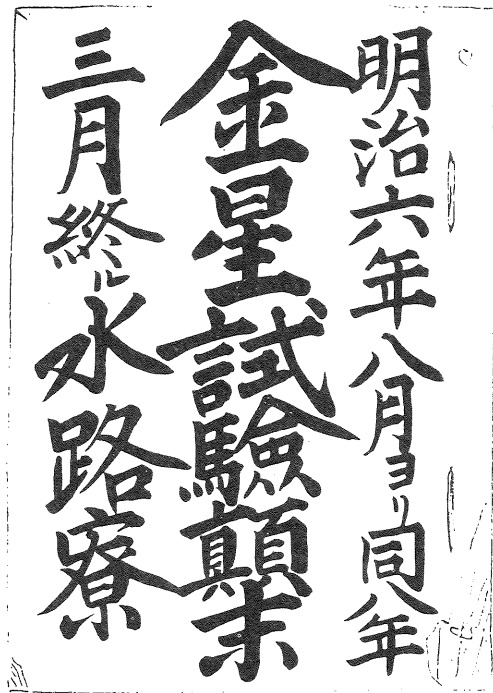 明治六年八月ヨリ同八年
金星試驗顛末
三月終ル水路寮